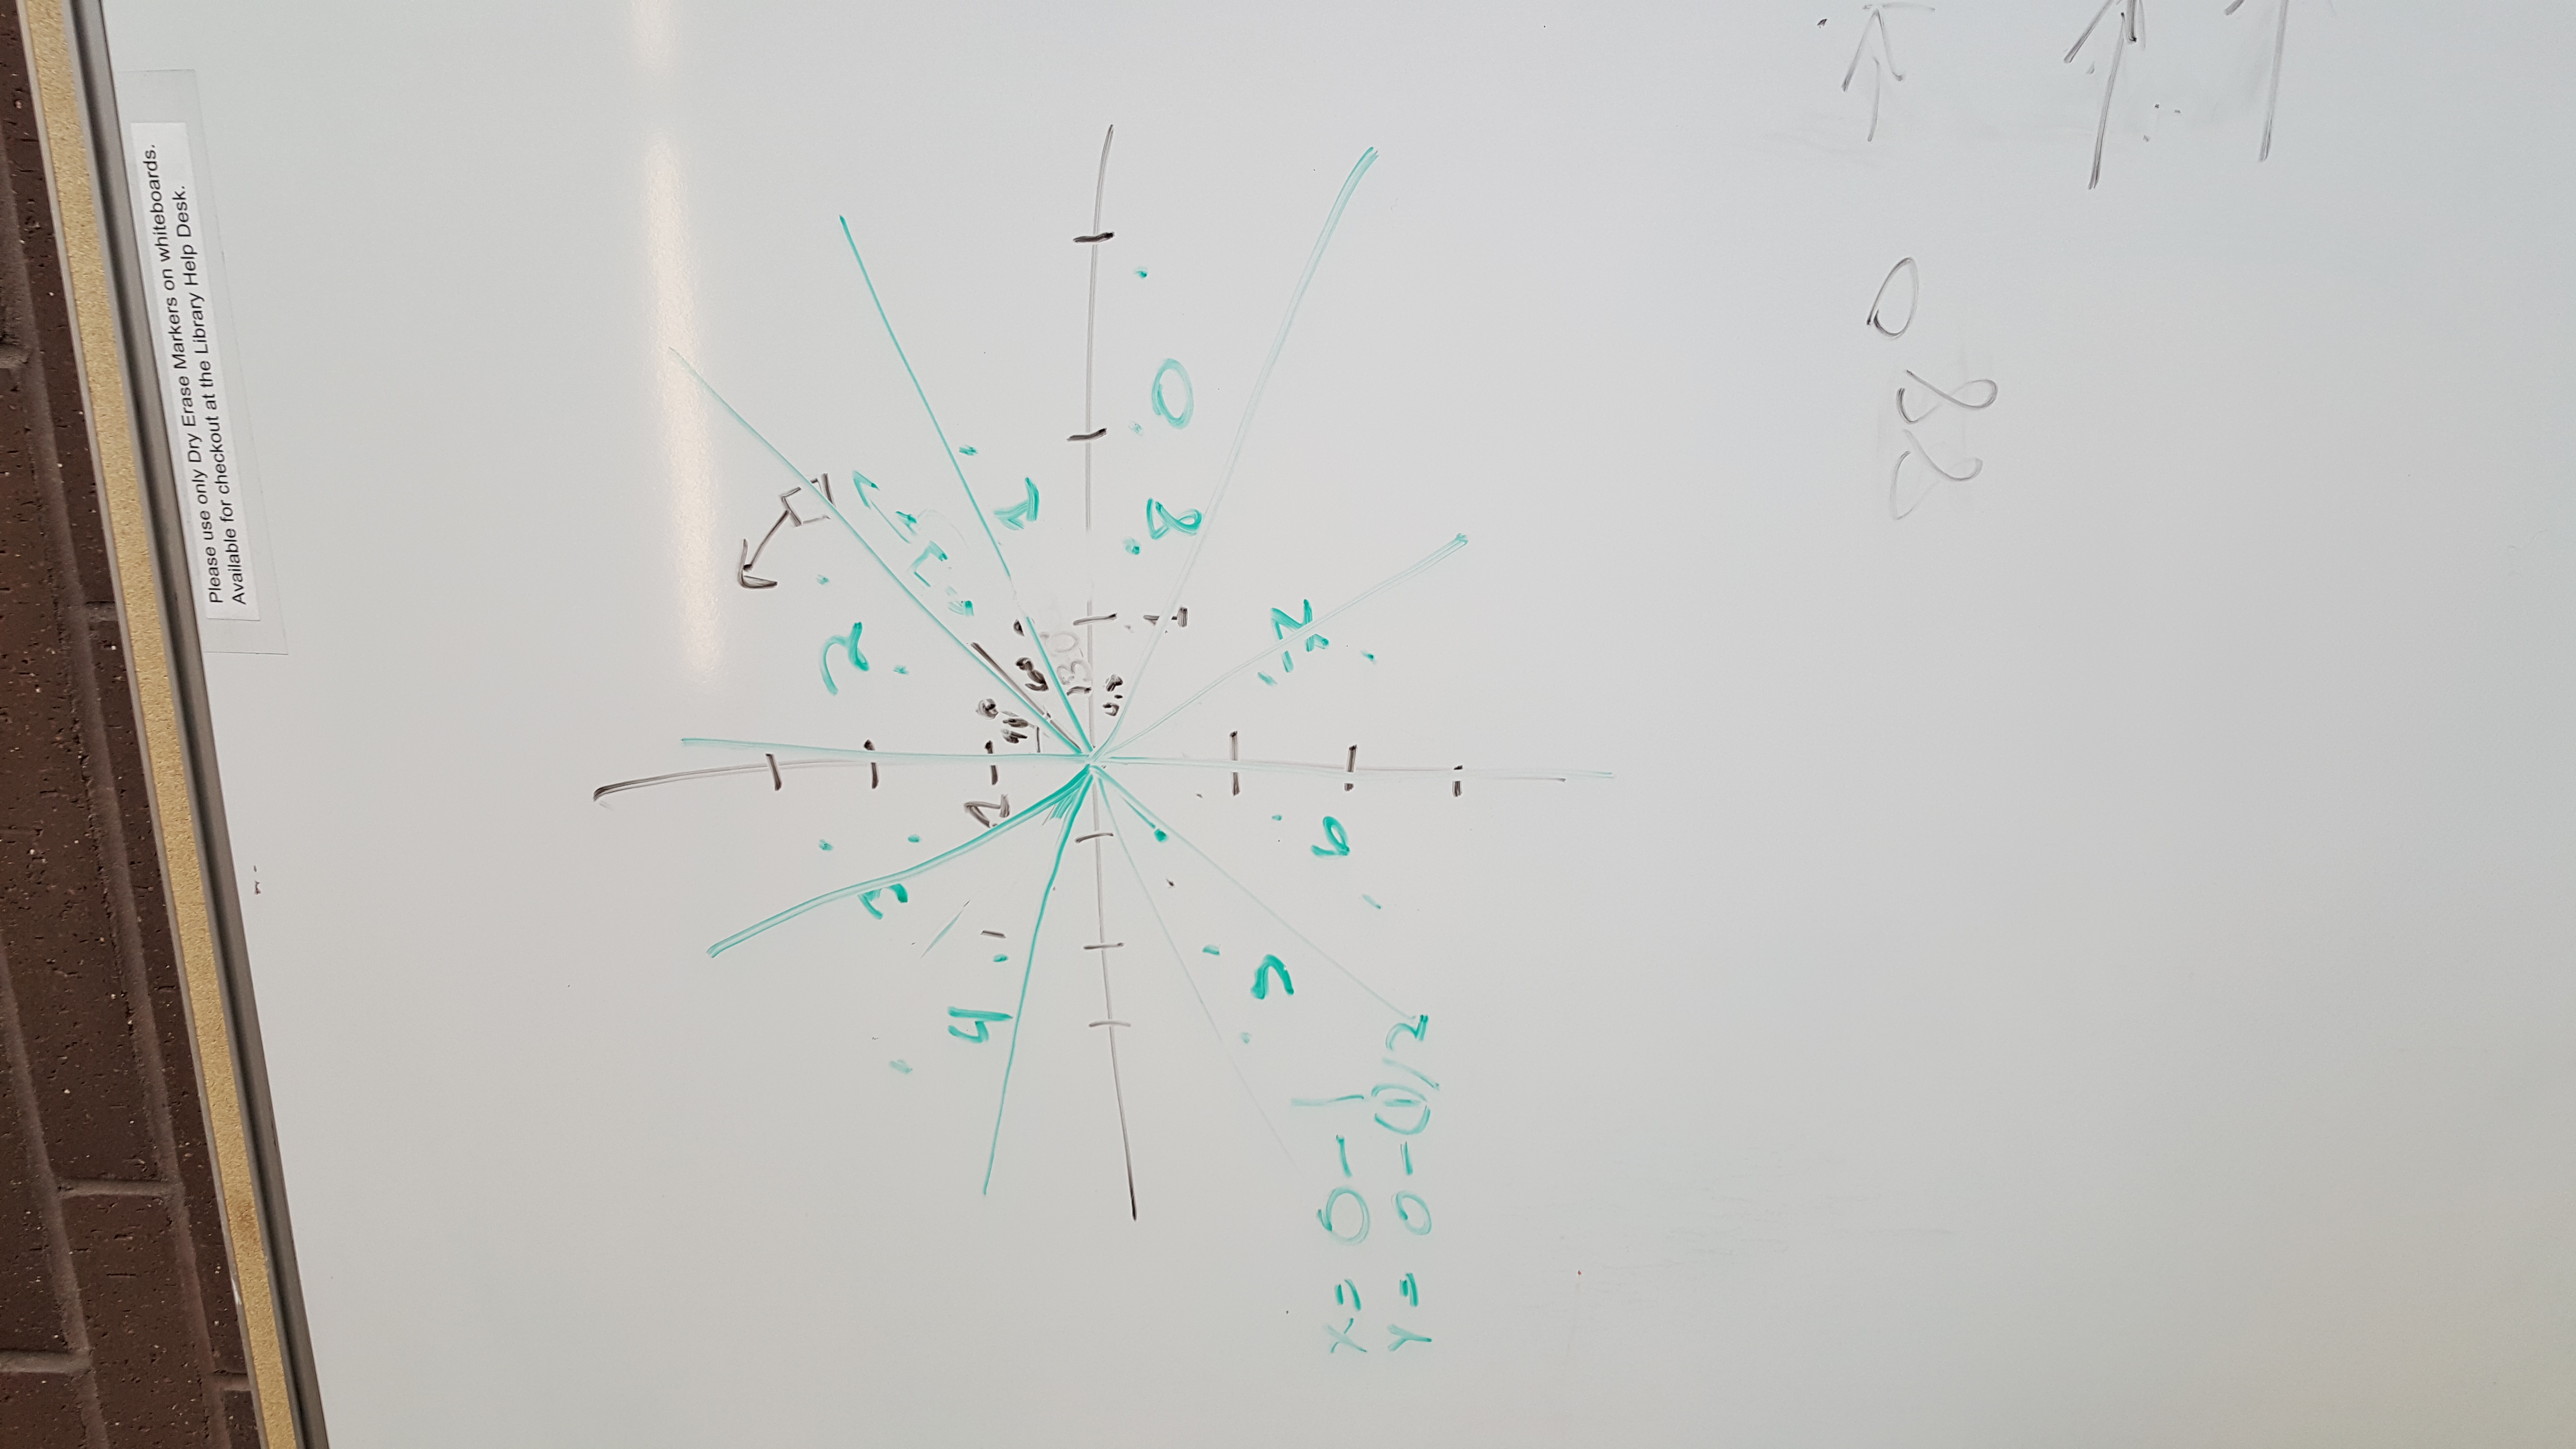 Please use only Dry Erase Markers on whiteboards.
Available for checkout at the Library Help Desk.
2
3
4
1
1
90°
60°
30°
0,0
1
8 0
5
6
X = 0 - 1
Y = 0 - (1)/2
88°